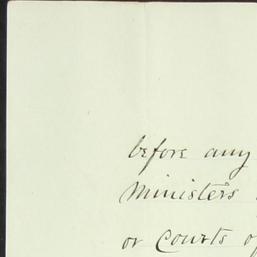 before any
Ministers
or Courts of